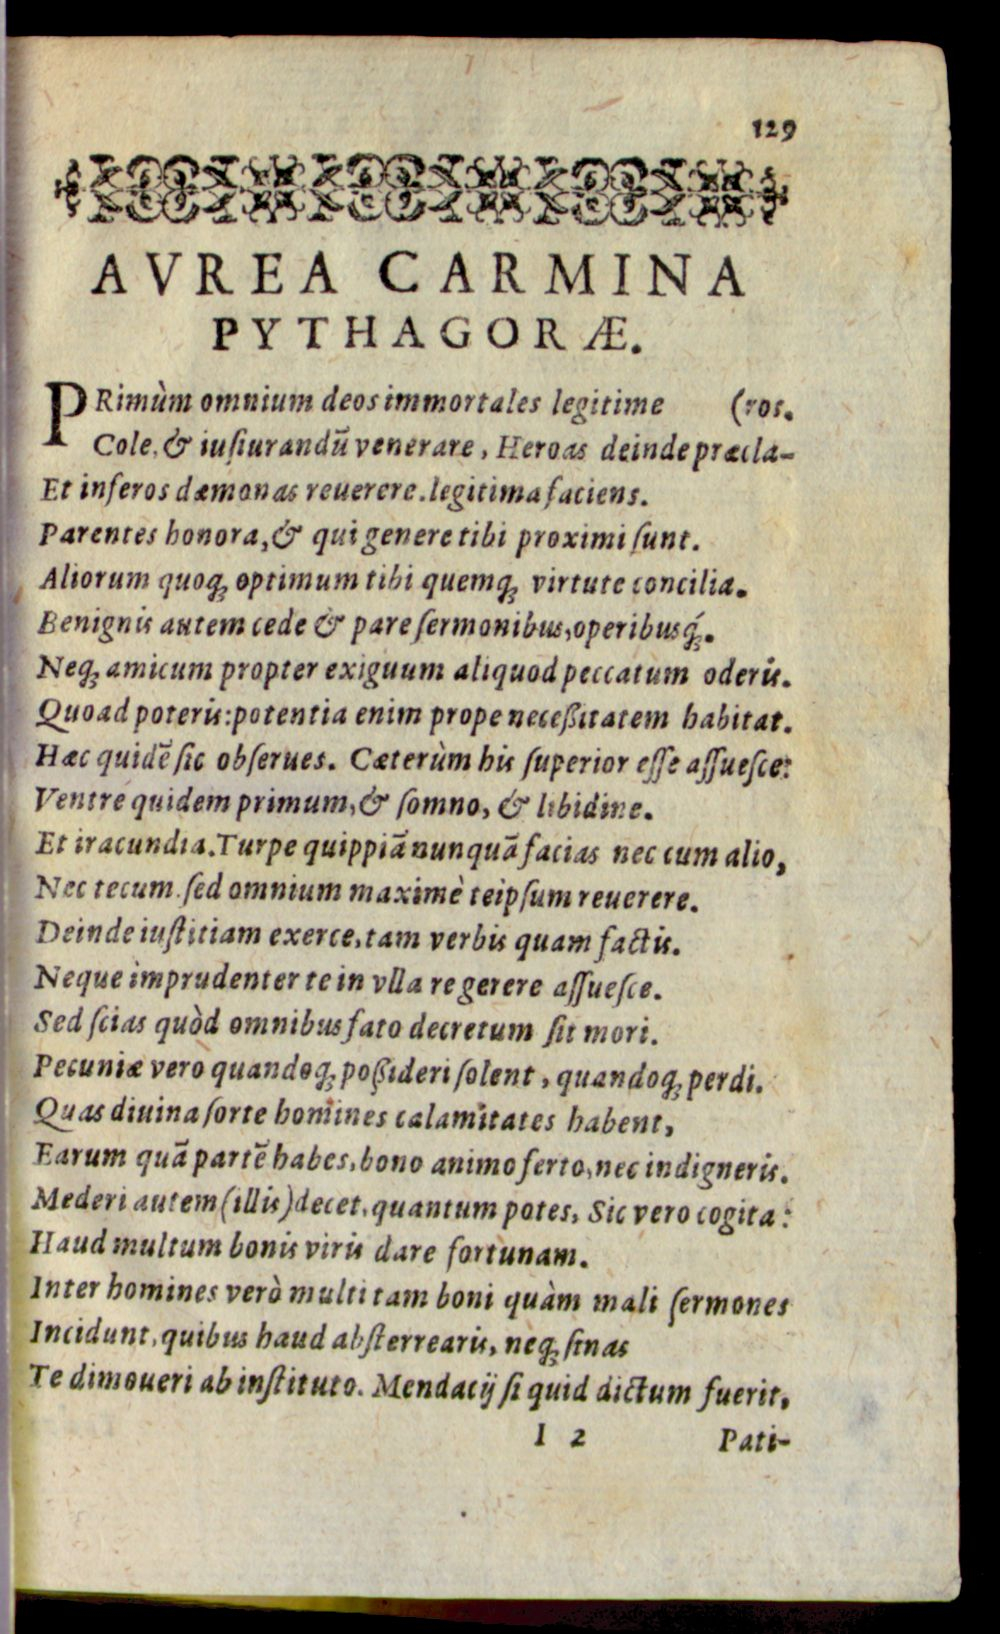 129
AVREA CARMINA
PYTHAGORÆ.
PRimùm omnium deos immortales legitime (ros.
Cole, & iuſiurandũ venerare, Heroas deinde præcla-
Et inferos dæmonas reuerere. legitima faciens.
Parentes honora, & qui genere tibi proximi ſunt.
Aliorum quoq; optimum tibi quemq; virtute concilia.
Benignis autem cede & pare ſermonibus, operibusq́;.
Neq; amicum propter exiguum aliquod peccatum oderis.
Quoad poteris: potentia enim prope neceßitatem habitat.
Hæc quidẽ ſic obſerues. Cæterùm his ſuperior eſſe aſſueſce:
Ventre quidem primum, & ſomno, & libidine.
Et iracundia. Turpe quippiã nunquã facias nec cum alio,
Nec tecum. ſed omnium maximè teipſum reuerere.
Deinde iuſtitiam exerce, tam verbis quam factis.
Neque imprudenter te in vlla re gerere aſſueſce.
Sed ſcias quòd omnibus fato decretum ſit mori.
Pecuniæ vero quandoq; poßideri ſolent, quandoq; perdi.
Quas diuina ſorte homines calamitates habent,
Earum quã partẽ habes, bono animo ferto, nec indigneris.
Mederi autem (illis) decet, quantum potes, Sic vero cogita:
Haud multum bonis viris dare fortunam.
Inter homines verò multi tam boni quàm mali ſermones
Incidunt, quibus haud abſterrearis, neq; ſinas
Te dimoueri ab inſtituto. Mendacij ſi quid dictum fuerit,
I 2 Pati-